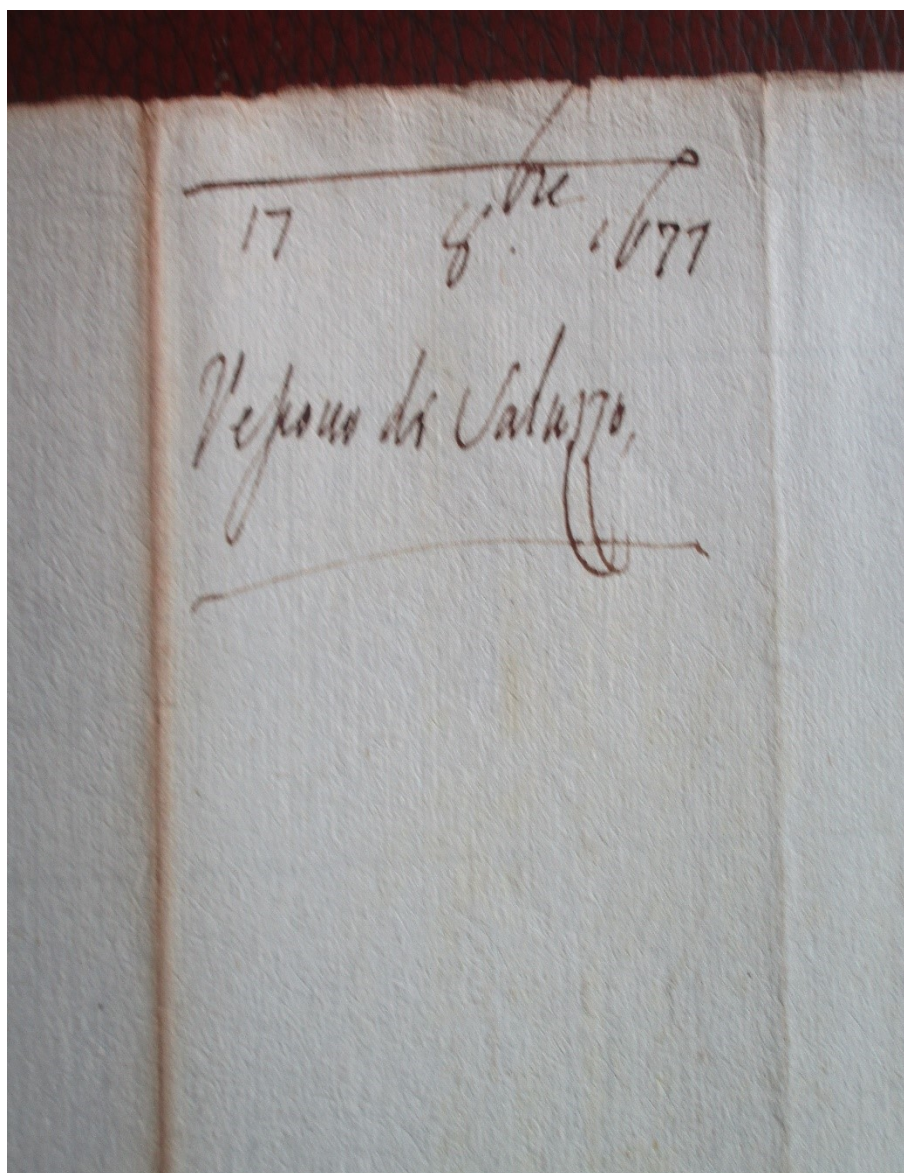 17 8.bre 1677
Vescouo di Saluzzo,